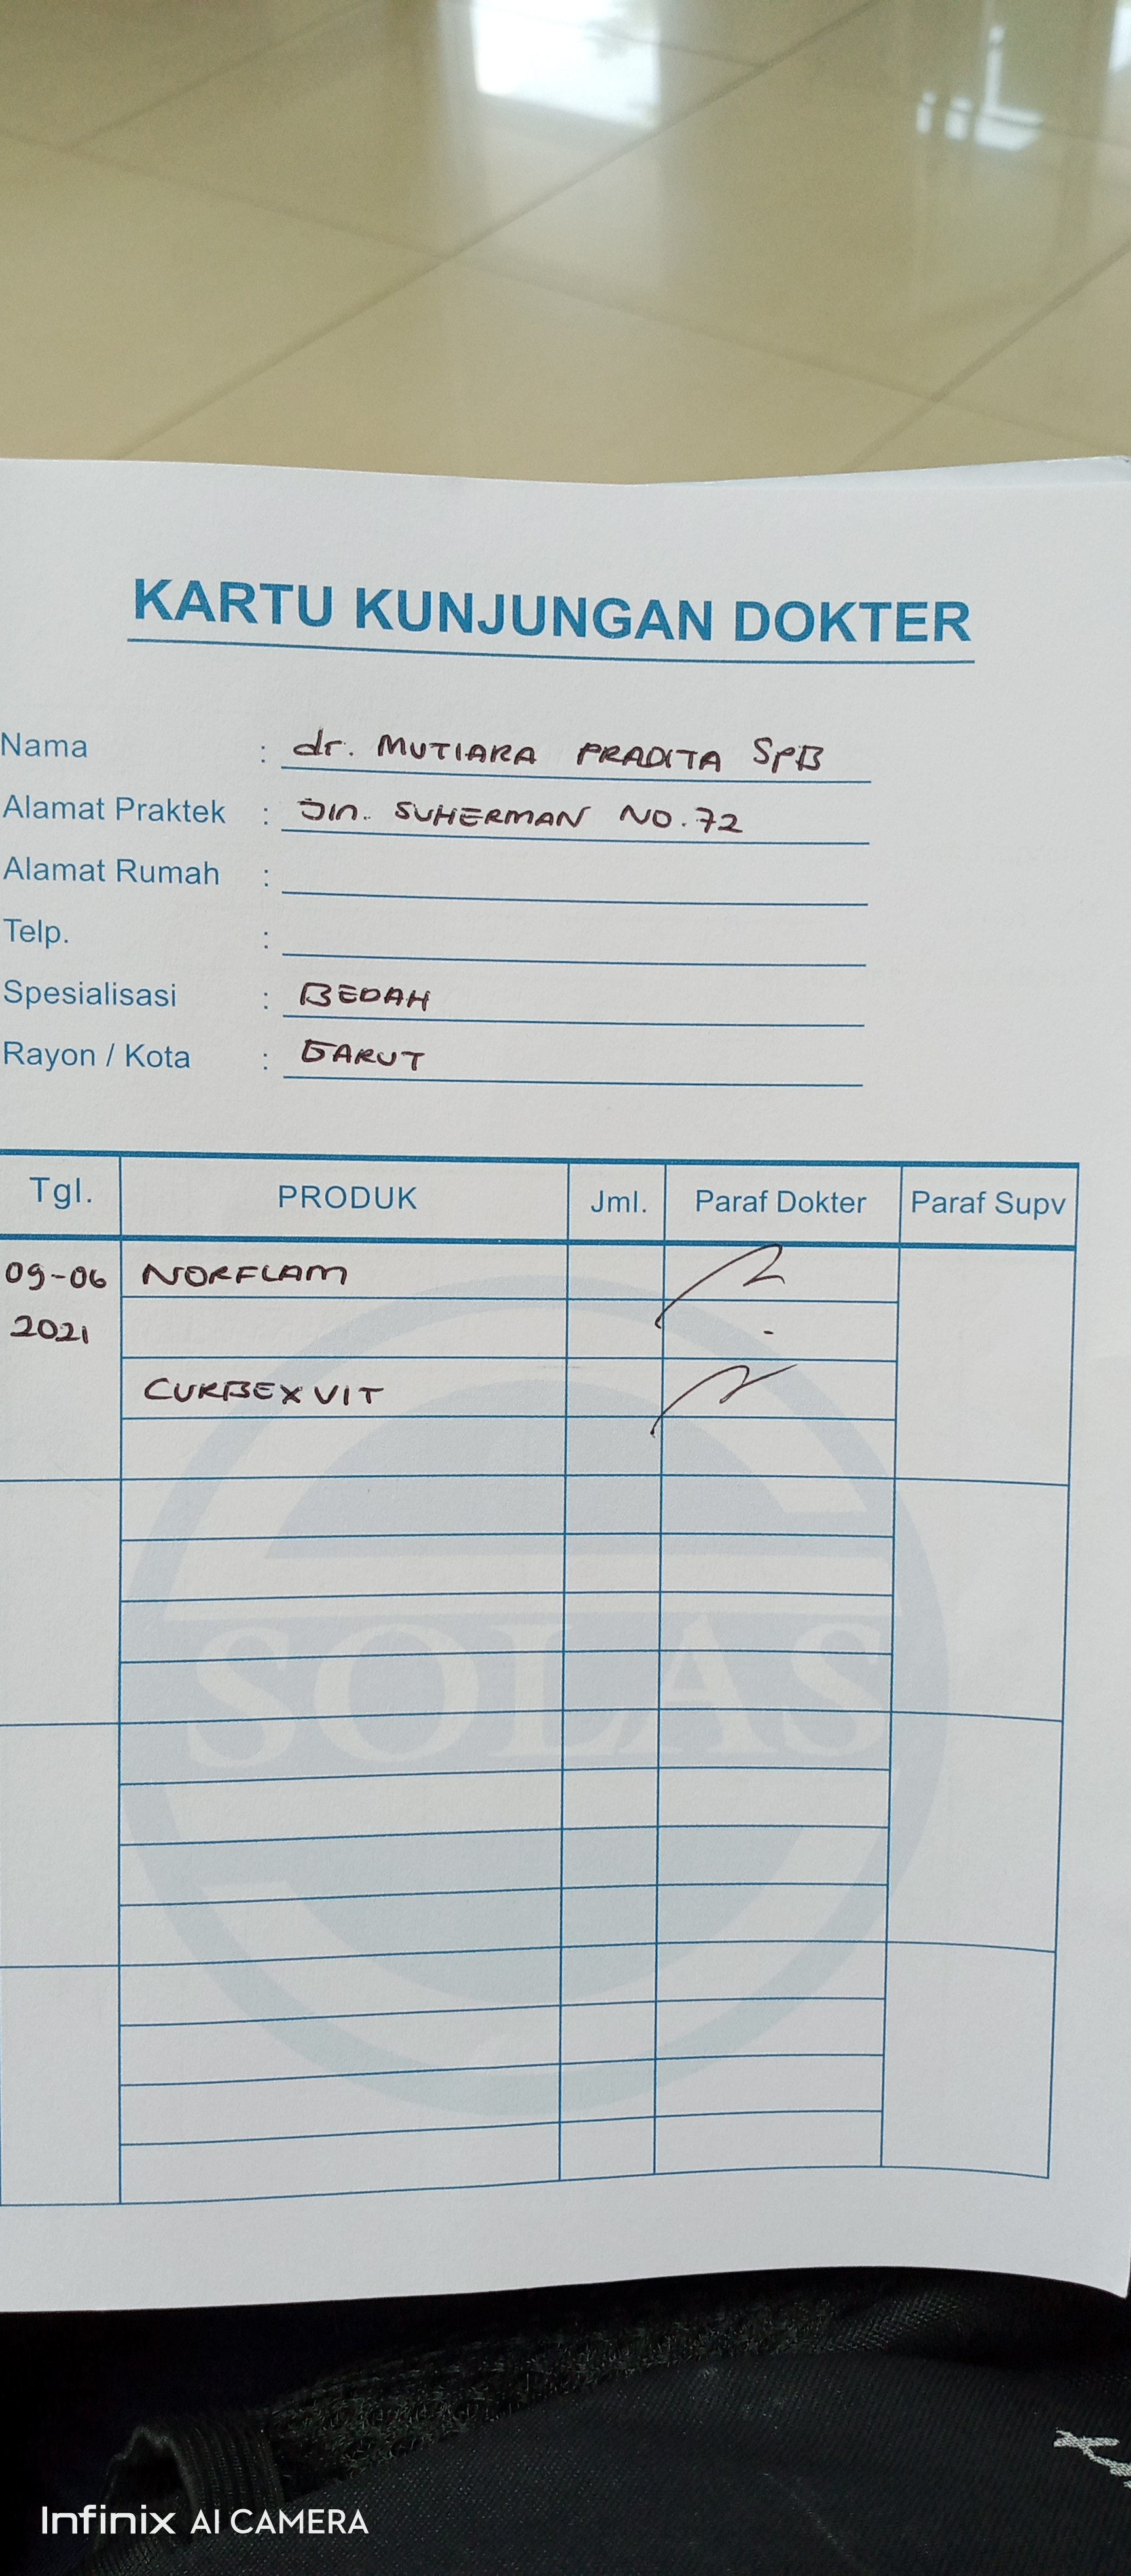 KARTU KUNJUNGAN DOKTER
Nama : dr. MUTIARA PRADITA SPB
Alamat Praktek : Jln. SUHERMAN NO.72
Alamat Rumah :
Telp. :
Spesialisasi : BEDAH
Rayon / Kota : GARUT
Tgl. PRODUK Jml. Paraf Dokter Paraf Supv
09-06 NORFLAM
2021
CURBEXVIT
SOLAS
Infinix AI CAMERA